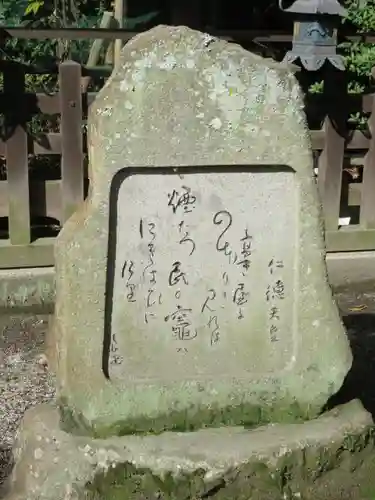 仁徳天皇
高き屋に
のほりて見れは
煙たつ民の竈は
にきはひに
けり